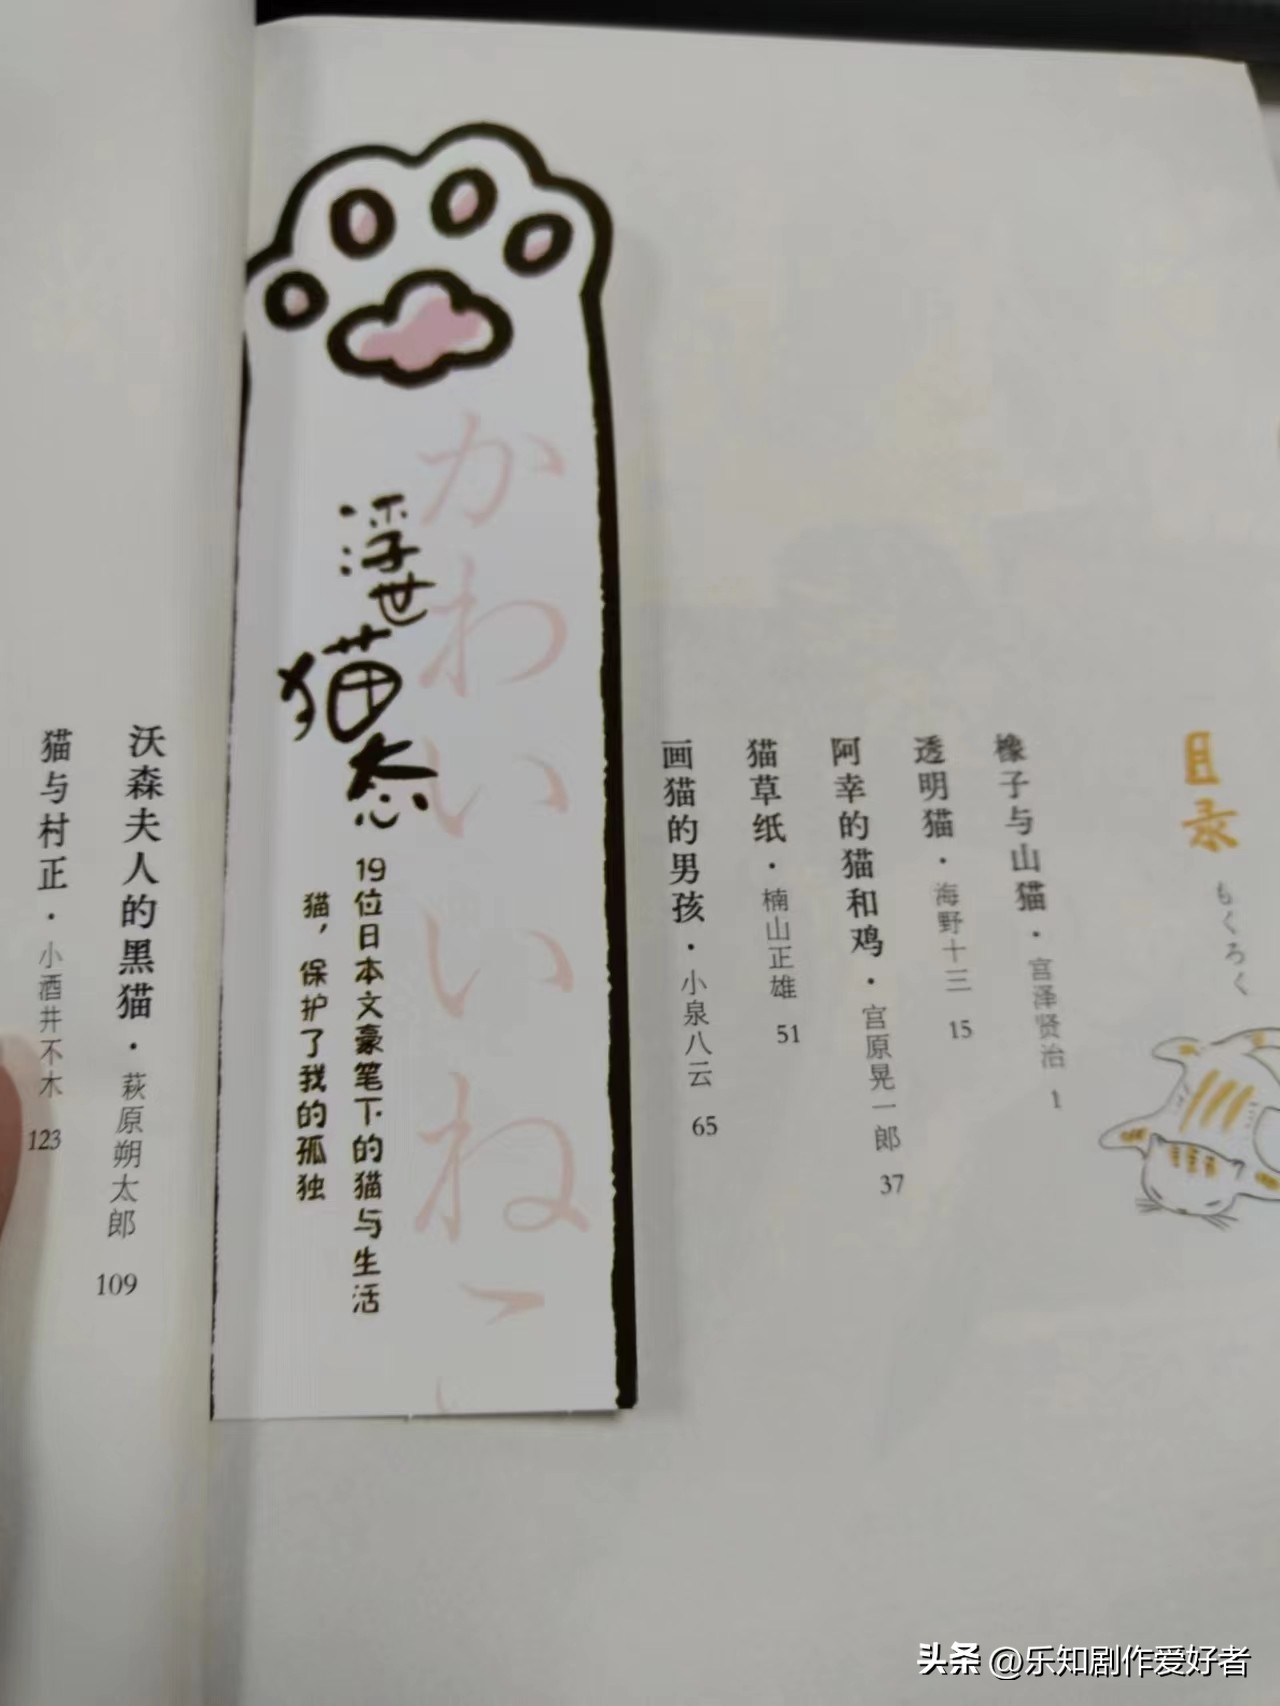 目录
もくろく
橡子与山猫·宫泽贤治 1
透明猫·海野十三 15
阿幸的猫和鸡·宫原晃一郎 37
猫草纸·楠山正雄 51
画猫的男孩·小泉八云 65
かわいいねこ
浮世猫态
19位日本文豪笔下的猫与生活
猫，保护了我的孤独
沃森夫人的黑猫·萩原朔太郎 109
猫与村正·小酒井不木 123
头条 @乐知剧作爱好者